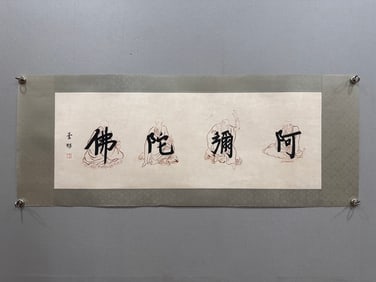 阿彌陀佛